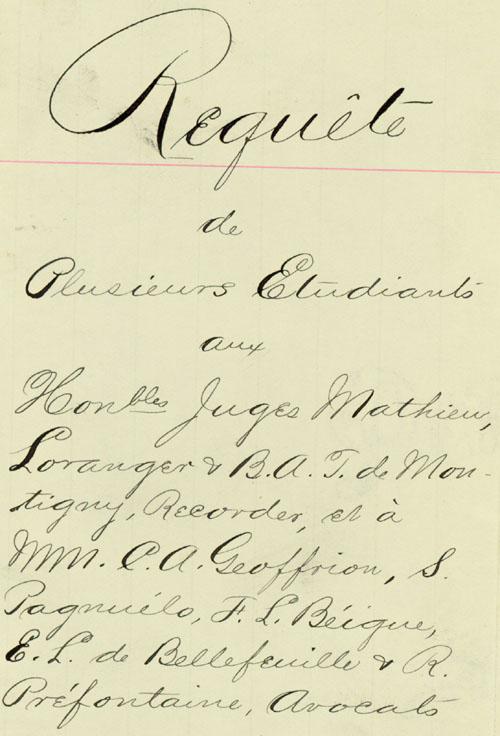 Requête
de
Plusieurs Etudiants
aux
Honbles Juges Mathieu,
Loranger & B.A.T. de Mon-
tigny, Recorder, et à
MM. C.A. Geoffrion, S.
Pagnuélo, F.L. Béique,
E.L. de Bellefeuille & R.
Préfontaine, Avocats